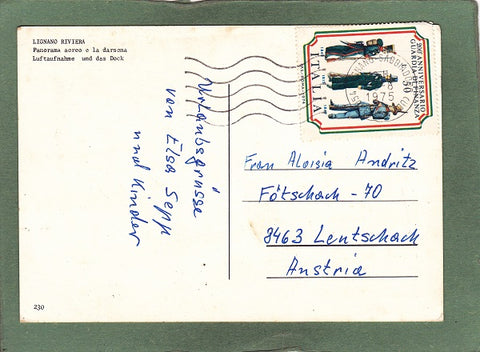 LIGNANO RIVIERA
Panorama aereo e la darsena
Luftaufnahme und das Dock
Urlaubsgrüsse
von Elsa Sepp
und Kinder
200° ANNIVERSARIO
GUARDIA DI FINANZA
50
ITALIA
1975
Fran Aloisia Andritz
Fötschach - 70
8463 Leutschach
Austria
230